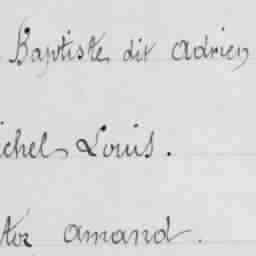 Baptiste dit Adrien
ichel Louis.
tor amand.